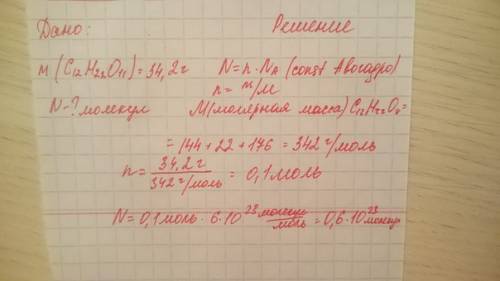 Дано: Решение
м (C12H22O11) = 34,2 г N = n · NA (const Авогадро)
n = m/M
N - ? молекул M (молярная масса) C12H22O11 =
= 144 + 22 + 176 = 342 г/моль
n = 34,2 г / 342 г/моль = 0,1 моль
N = 0,1 моль · 6 · 10^23 молекул/моль = 0,6 · 10^23 молекул